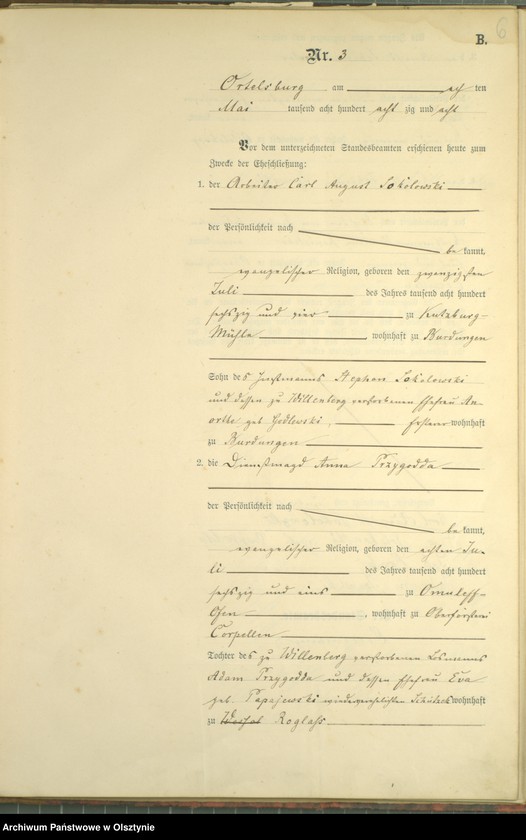 6
B.
Nr. 3
Ortelsburg am acht ten
Mai tausend acht hundert acht zig und acht
Vor dem unterzeichneten Standesbeamten erschienen heute zum
Zwecke der Eheschließung:
1. der Arbeiter Carl August Sokolowski
der Persönlichkeit nach
be kannt,
evangelischer Religion, geboren den zwanzigsten
Juli des Jahres tausend acht hundert
sechszig und vier zu Kutzburg-
Mühle wohnhaft zu Burdungen
Sohn des Instmanns Stephan Sokolowski
und dessen zu Willenberg verstorbenen Ehefrau An-
orthe geb Godlewski, Ersterer wohnhaft
zu Burdungen
2. die Dienstmagd Anna Przygodda
der Persönlichkeit nach
be kannt,
evangelischer Religion, geboren den achten Ju-
li des Jahres tausend acht hundert
sechszig und eins zu Omuleff-
Ofen, wohnhaft zu Oberförsterei
Corpellen
Tochter des zu Willenberg verstorbenen Losmanns
Adam Przygodda und dessen Ehefrau Eva
geb. Papajewski wiederverehelichten wohnhaft
zu Roglass
Archiwum Państwowe w Olsztynie